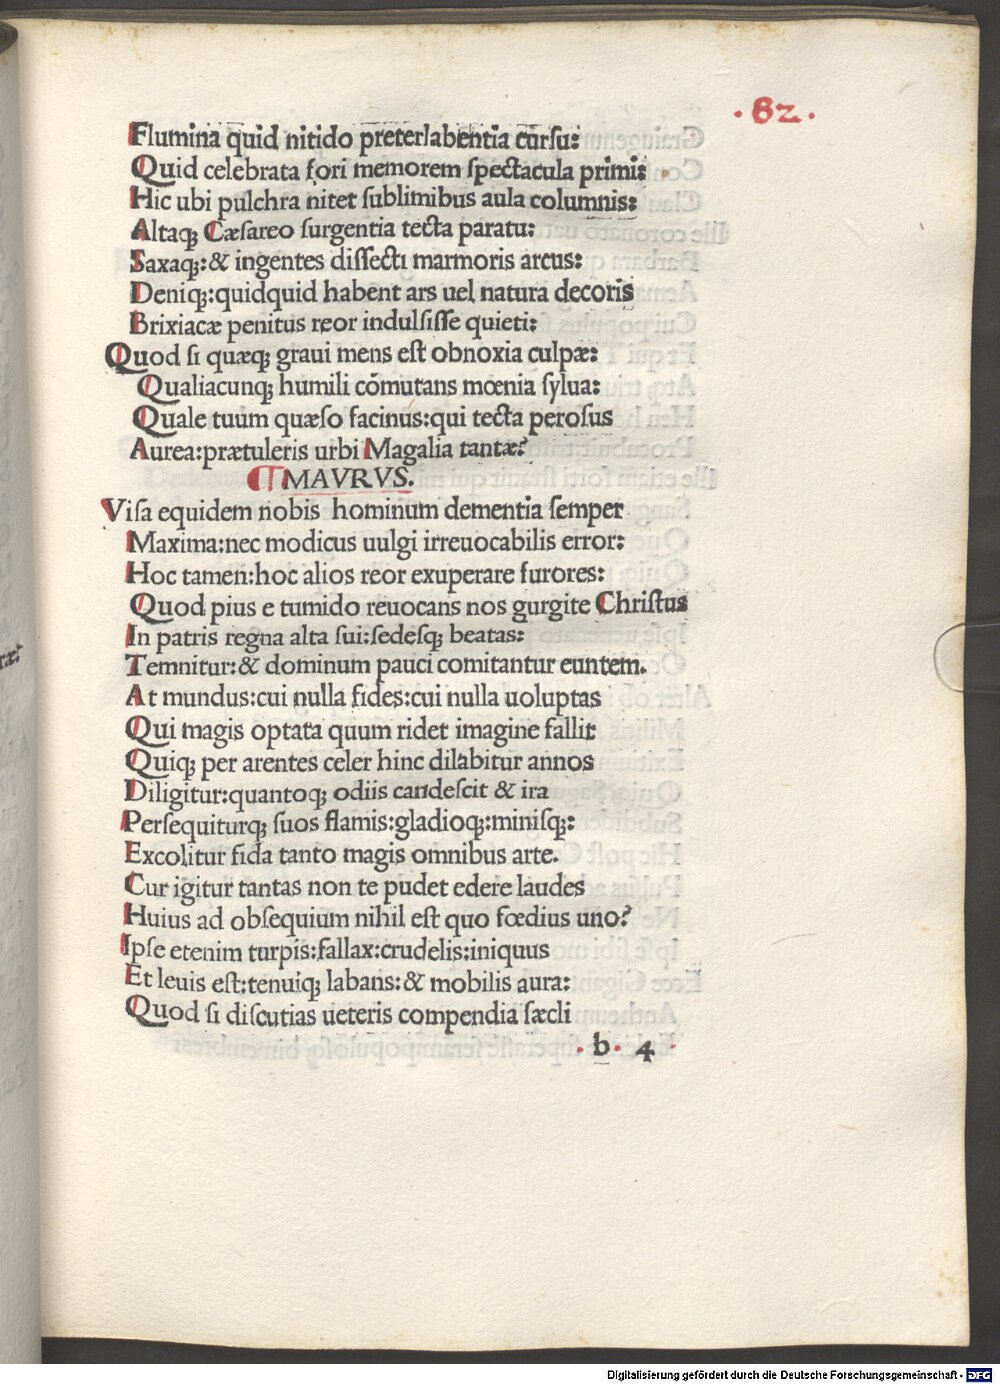 · 82 ·
Flumina quid nitido preterlabentia cursu:
Quid celebrata fori memorem spectacula primi:
Hic ubi pulchra nitet sublimibus aula columnis:
Altaq; Cæsareo surgentia tecta paratu:
Saxaq;:& ingentes dissecti marmoris arcus:
Deniq;:quidquid habent ars uel natura decoris
Brixiacæ penitus reor indulsisse quieti:
Quod si quæq; graui mens est obnoxia culpæ:
Qualiacunq; humili cōmutans mœnia sylua:
Quale tuum quæso facinus:qui tecta perosus
Aurea:prætuleris urbi Magalia tantæ?
¶ MAVRVS.
Visa equidem nobis hominum dementia semper
Maxima:nec modicus uulgi irreuocabilis error:
Hoc tamen:hoc alios reor exuperare furores:
Quod pius e tumido reuocans nos gurgite Christus
In patris regna alta sui:sedesq; beatas:
Temnitur:& dominum pauci comitantur euntem.
At mundus:cui nulla fides:cui nulla uoluptas
Qui magis optata quum ridet imagine fallit
Quiq; per arentes celer hinc dilabitur annos
Diligitur:quantoq; odiis candescit & ira
Persequiturq; suos flamis:gladioq;:minisq;:
Excolitur fida tanto magis omnibus arte.
Cur igitur tantas non te pudet edere laudes
Huius ad obsequium nihil est quo fœdius uno?
Ipse etenim turpis:fallax:crudelis:iniquus
Et leuis est:tenuiq; labans:& mobilis aura:
Quod si discutias ueteris compendia sæcli
· b · 4
Digitalisierung gefördert durch die Deutsche Forschungsgemeinschaft - DFG